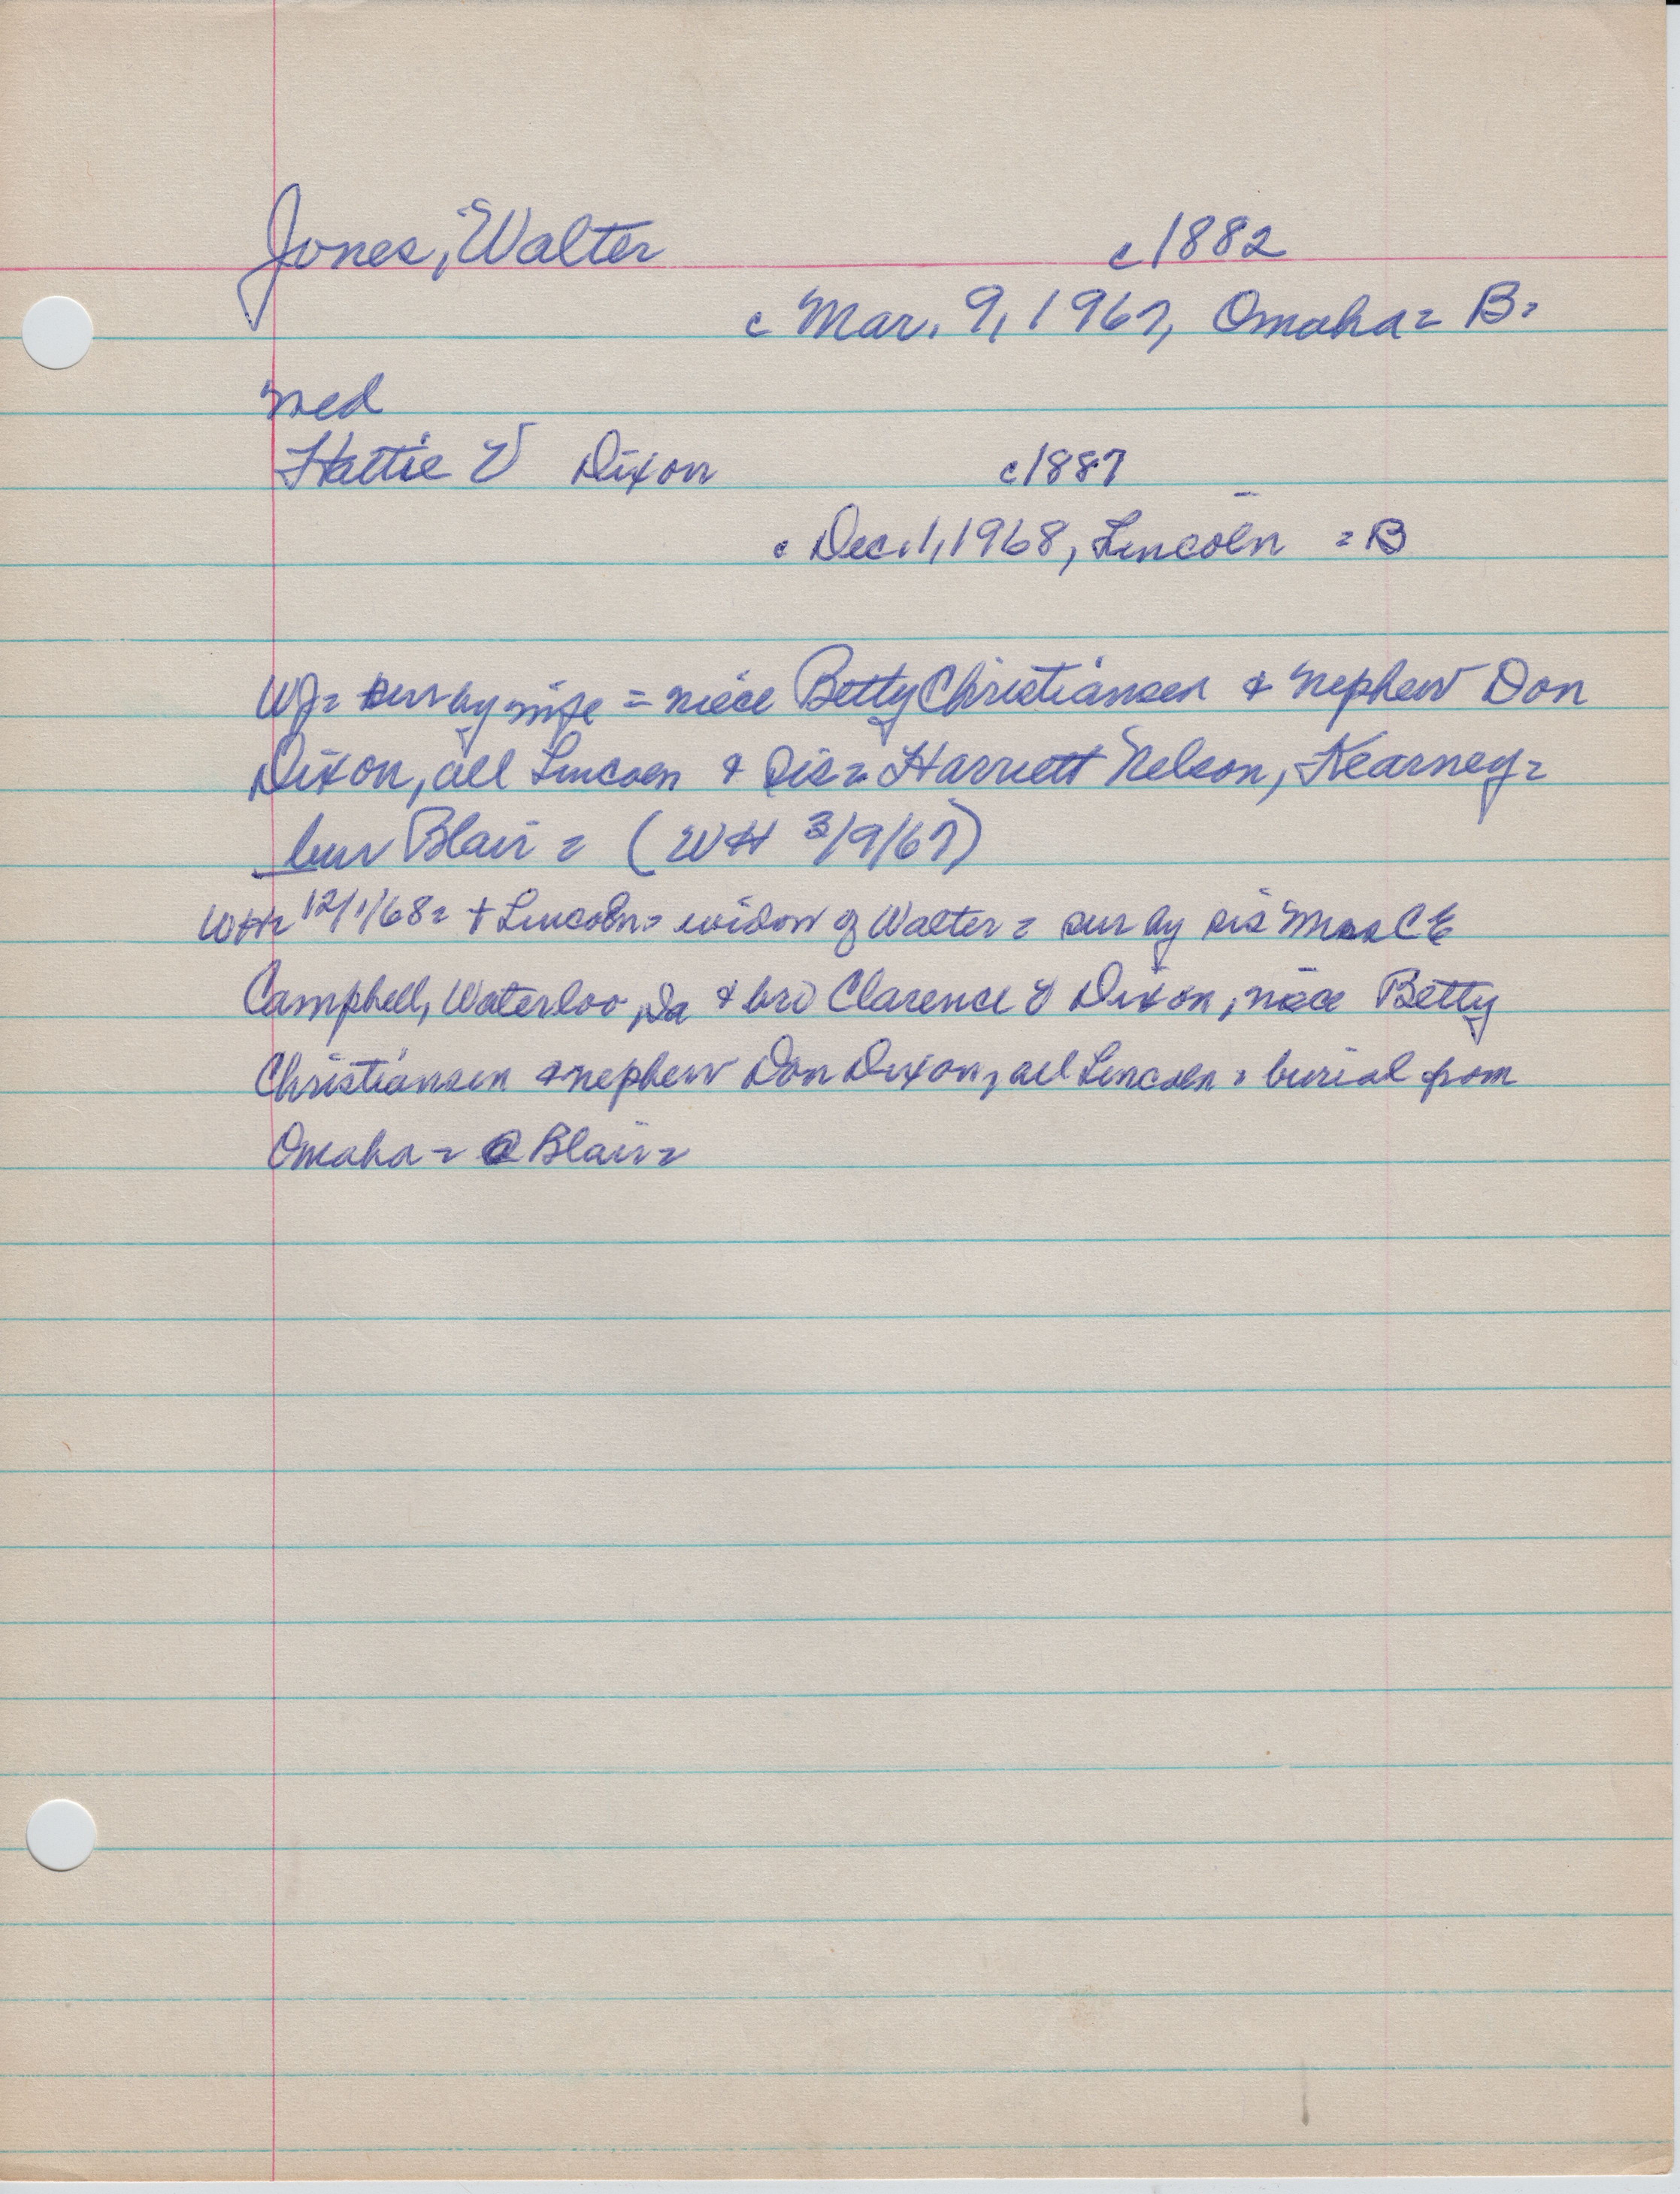 Jones, Walter c1882
c Mar. 9, 1967, Omaha = B =
med
Hattie V Dixon c1887
c Dec. 1, 1968, Lincoln = B
WJ = sur by wife = niece Betty Christiansen & nephew Don
Dixon, all Lincoln & sis = Harriett Nelson, Kearney =
bur Blair = (WH 3/9/67)
WH = 12/1/68 = + Lincoln = widow of Walter = sur by sis Mrs C E
Campbell, Waterloo, Ia & bro Clarence Dixon, niece Betty
Christiansen & nephew Don Dixon, all Lincoln = burial from
Omaha = @ Blair =